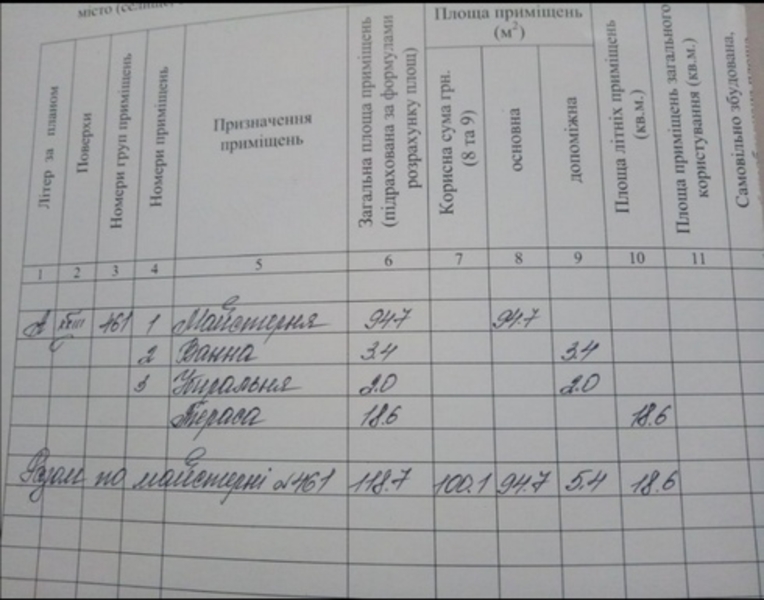 місто (селище,
Літер за планом
Поверхи
Номери груп приміщень
Номери приміщень
Призначення приміщень
Загальна площа приміщень (підрахована за формулами розрахунку площ)
Площа приміщень (м²)
Корисна сума грн. (8 та 9)
основна
допоміжна
Площа літніх приміщень (кв.м.)
Площа приміщень загального користування (кв.м.)
Самовільно збудована,
1 2 3 4 5 6 7 8 9 10 11
А 461 1 Майстерня 94.7 94.7
2 Ванна 3.4 3.4
3 Убиральня 2.0 2.0
Тераса 18.6 18.6
Разом по майстерні №461 118.7 100.1 94.7 5.4 18.6